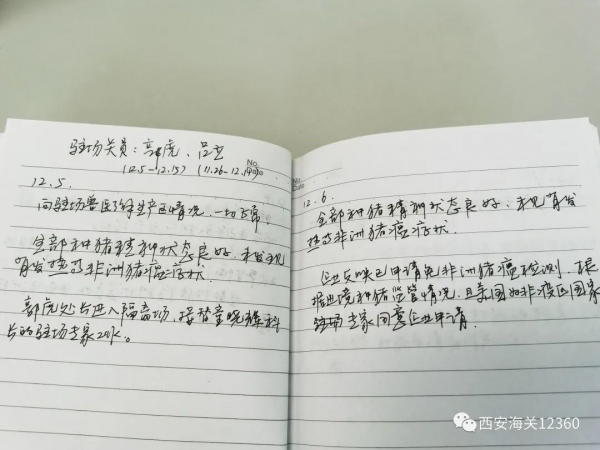 驻场关员：郭虎、吕立
(12.5-12.15) (11.26-12.10)
No.
Date
12.5.
向驻场兽医了解生产区情况，一切正常。
全部种猪精神状态良好，未发现
有发热等非洲猪瘟症状
郭虎处长进入隔离场，接替童晓雄科
长的驻场专家工作。
No.
Date
12.6.
全部种猪精神状态良好，未见有发
热等非洲猪瘟症状.
企业反映已申请免非洲猪瘟检测，根
据出境种猪监管情况，且美国如非疫区国家
驻场专家同意企业申请.
西安海关12360